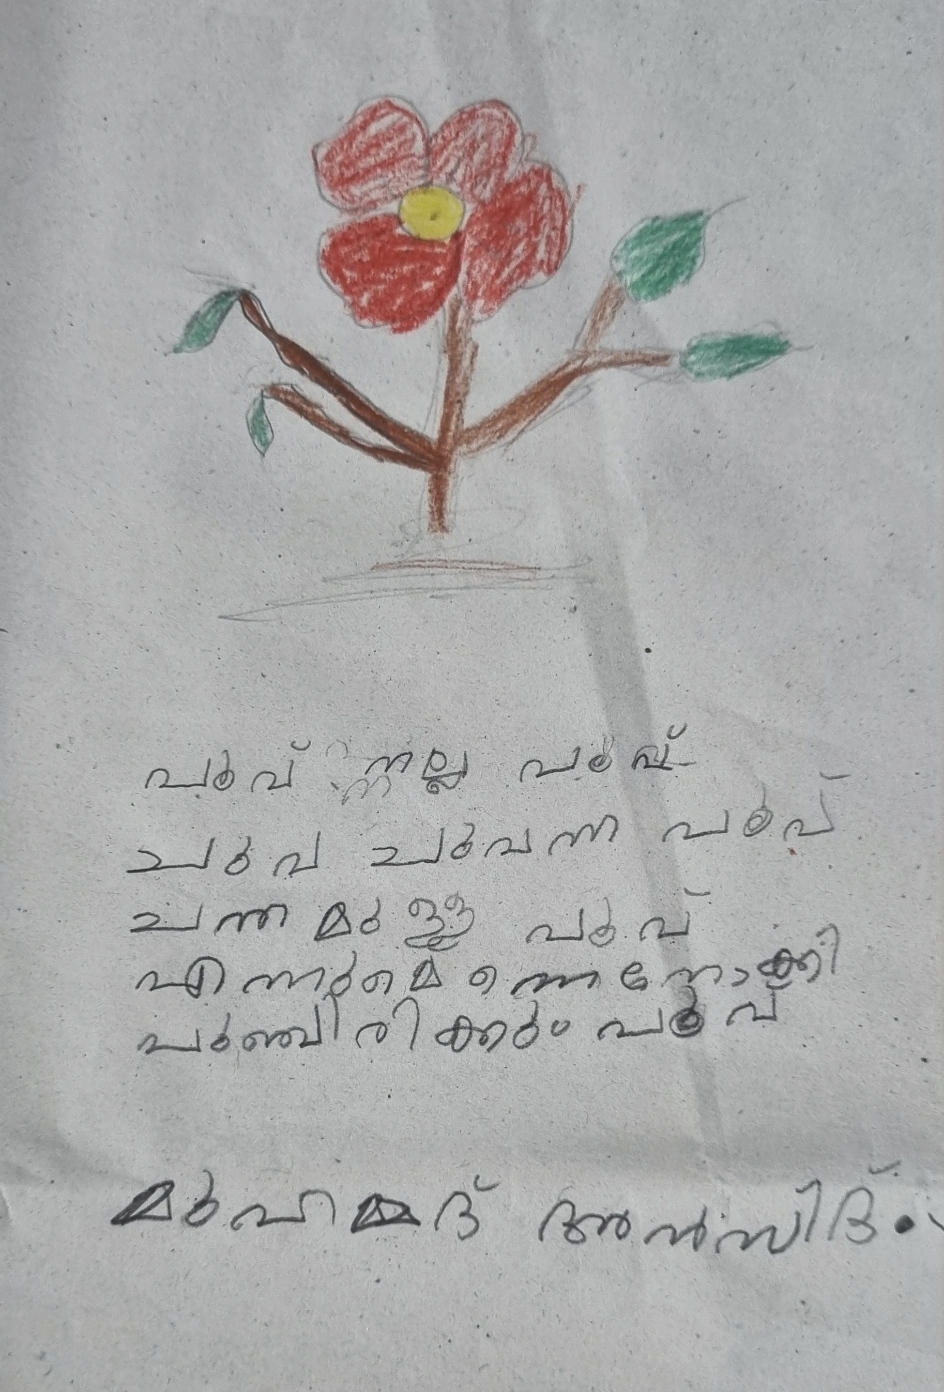 പൂവ് നല്ല പൂവ്
ചുവ ചുവന്ന പൂവ്
ചന്തമുള്ള പൂവ്
എന്നുമെന്നെ നോക്കി
പുഞ്ചിരിക്കും പൂവ്
മുഹമ്മദ് അൻസിദ്.